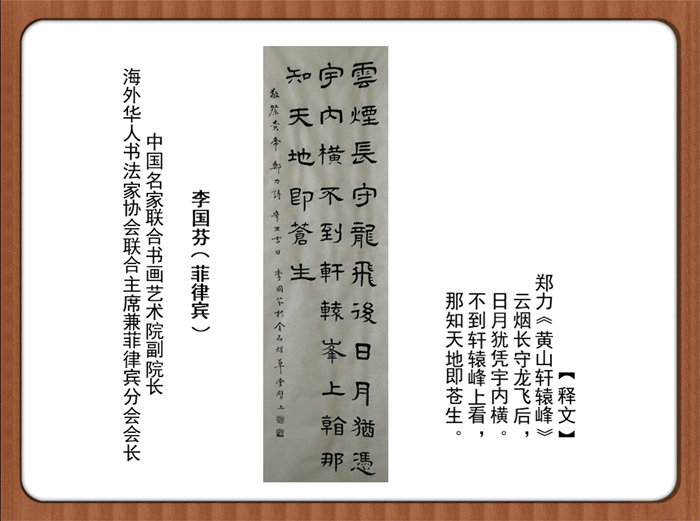 【释文】
郑力《黄山轩辕峰》
云烟长守龙飞后，
日月犹凭宇内横。
不到轩辕峰上看，
那知天地即苍生。
雲煙長守龍飛後日月猶憑
宇内橫不到軒轅峯上那
知天地即蒼生
敬祭黄帝 鄭力詩 辛丑吉日 李國芬於金石草堂
李国芬（菲律宾）
中国名家联合书画艺术院副院长
海外华人书法家协会联合主席兼菲律宾分会会长